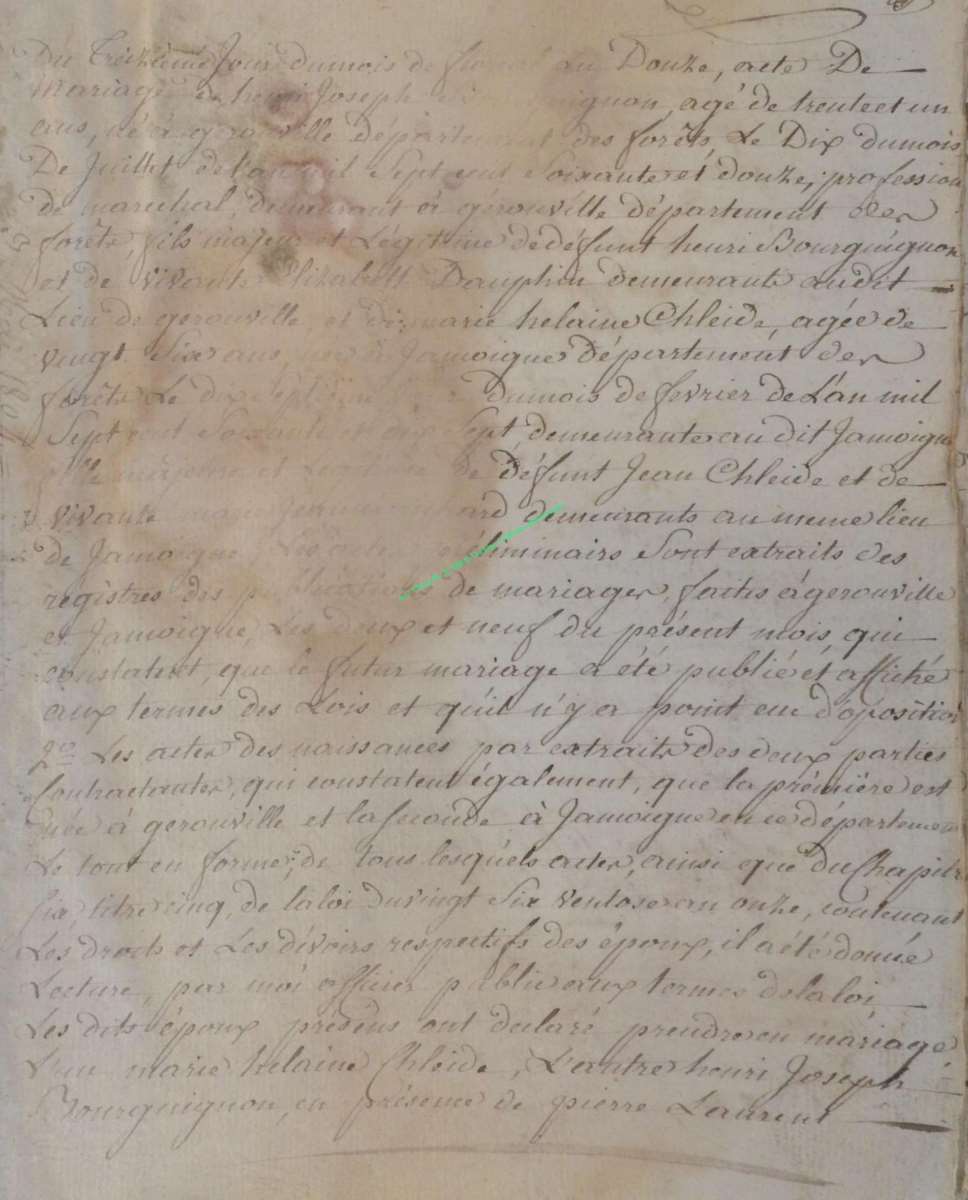 Du Treizième Jour dumois de floreal an Douze, acte De
Mariage de henri Joseph Bourguignon, agé de trente et un
ans, né à gerouville département des forêts, Le Dix dumois
De Juillet de l'an mil Sept cent Soixante et douze, profession
de marechal, demeurant à gérouville département des
forêts, fils majeur et Légitime de défunt henri Bourguignon
et de vivante Elizabeth Dauphin demeurante audit
Lieu de gerouville et de marie helaine Chleide, agée de
vingt Six ans, née à Jamoigne département des
forêts Le dix Septième dumois de fevrier de L'an mil
Sept cent Soixante et dix Sept, demeurante au dit Jamoigne
fille majeure et Legitime de défunt Jean Chleide et de
vivante demeurants au meme lieu
de Jamoigne, Les actes préliminairs Sont extraits des
règistres des publications de mariages, faites à gerouville
et Jamoigne, Les deux et neuf du présent mois, qui
constatent, que le futur mariage a été publié et affiché
aux termes des Lois et qu'il n'y a point eue d'oposition
2º Les actes des naissances par extraits des deux parties
Contractantes, qui constatent également, que la prémière est
née à gerouville et la Seconde à Jamoigne en ce département
Le tout en forme; de tous lesquels actes, ainsi que du Chapitre
Six, titre cinq, de la loi du vingt Six ventose an onze, contenant
Les droits et Les dévoirs respectifs des époux, il a été donnée
Lecture, par moi officier public aux termes de la loi,
Les dits époux présens ont declaré prendre en mariage
L'un marie helaine Chleide, L'autre henri Joseph
Bourguignon, en présence de pierre Laurent